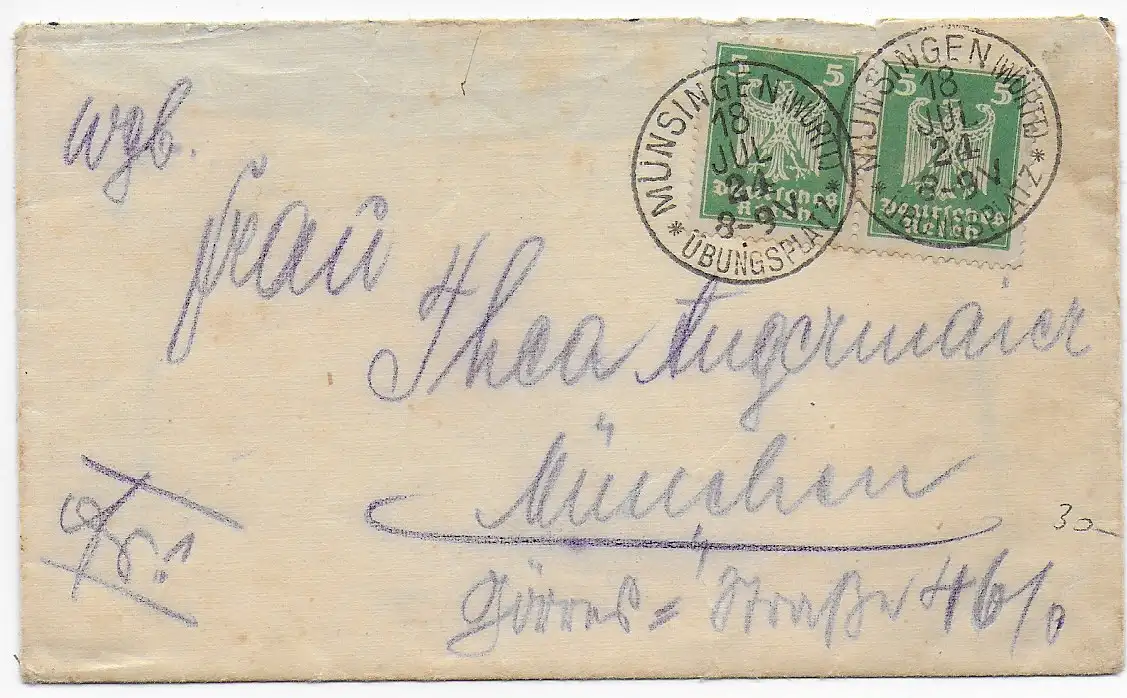 MÜNSINGEN (WÜRTT.)
18
JUL
24
8-9 V
* ÜBUNGSPLATZ *
MÜNSINGEN (WÜRTT.)
18
JUL
24
8-9 V
* ÜBUNGSPLATZ *
5
Deutsches
Reich
5 5
Deutsches
Reich
Frau
Thea Angermaier
München
Görres-Straße
30